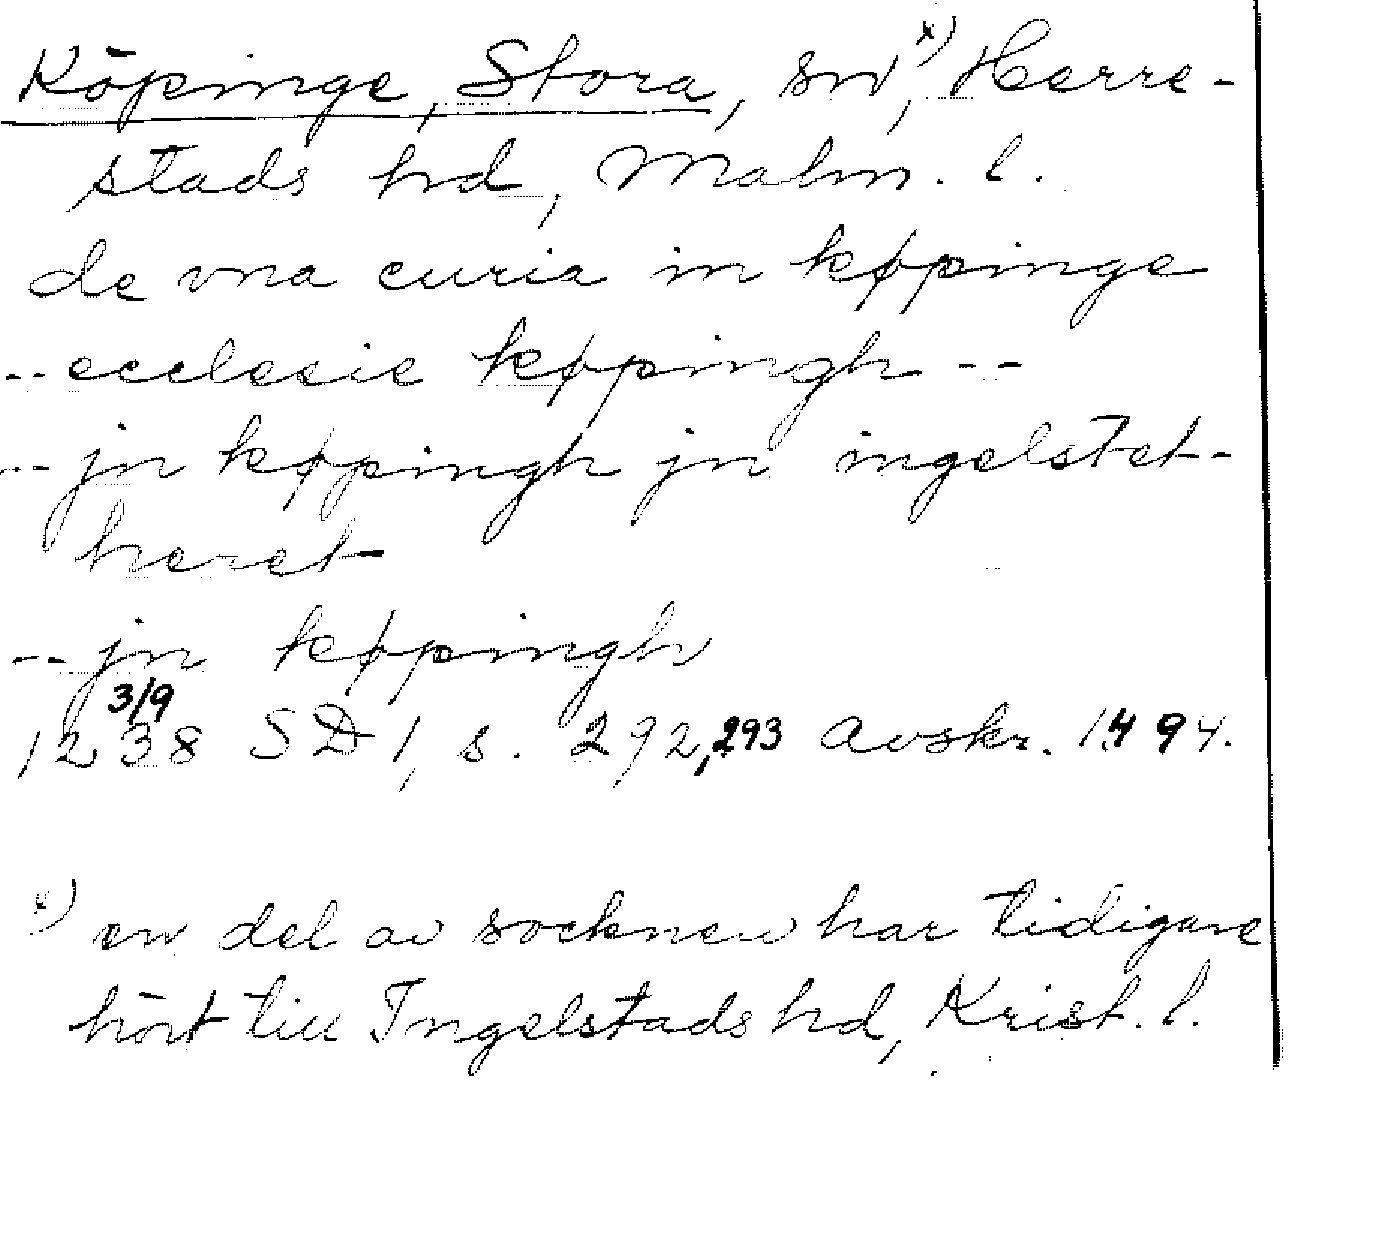 Köpinge, Stora, sn, x) Herre-
stads hd, Malm. l.
de vna curia in køpinge
-- ecclesie køpingh --
-- jn køpingh jn ingelstet-
heret
-- jn køpingh
3/9
1238 SD 1, s. 292, 293 Avskr. 1494.
x) en del av socknen har tidigare
hört till Ingelstads hd, Krist. l.